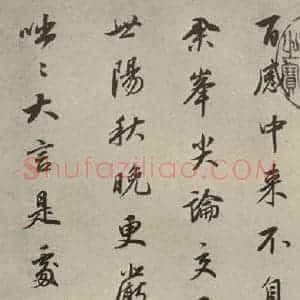 百感中来不自
朵峯尖論交
世陽秋晚更嚴
咄〻大言是處
Shufaziliao.com